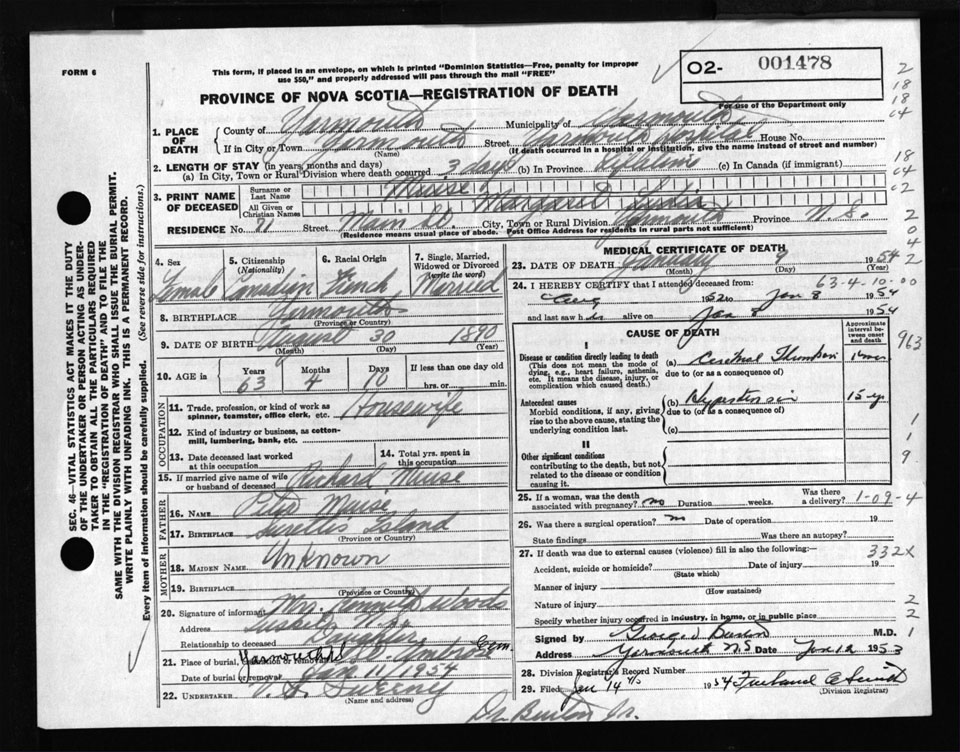 FORM 6
This form, if placed in an envelope, on which is printed "Dominion Statistics—Free, penalty for improper
use $50," and properly addressed will pass through the mail "FREE"
O2- 001478
For use of the Department only
PROVINCE OF NOVA SCOTIA—REGISTRATION OF DEATH
1. PLACE OF DEATH
County of Yarmouth Municipality of Yarmouth
If in City or Town Yarmouth Street Yarmouth Hospital House No.
(Name) (If death occurred in a hospital or institution, give the name instead of street and number)
2. LENGTH OF STAY (in years, months and days)
(a) In City, Town or Rural Division where death occurred 3 days (b) In Province (c) In Canada (if immigrant)
3. PRINT NAME OF DECEASED
Surname or Last Name Muise
All Given or Christian Names Margaret
RESIDENCE No. Street Main St. City, Town or Rural Division Yarmouth Province N.S.
(Residence means usual place of abode. Post Office Address for residents in rural parts not sufficient)
4. Sex 5. Citizenship (Nationality) 6. Racial Origin 7. Single, Married, Widowed or Divorced (write the word)
Female Canadian French Married
8. BIRTHPLACE Yarmouth
(Province or Country)
9. DATE OF BIRTH August 30 1890
(Month) (Day) (Year)
10. AGE in Years Months Days If less than one day old
63 4 10 hrs. or min.
OCCUPATION
11. Trade, profession, or kind of work as spinner, teamster, office clerk, etc. Housewife
12. Kind of industry or business, as cotton-mill, lumbering, bank, etc.
13. Date deceased last worked at this occupation
14. Total yrs. spent in this occupation
15. If married give name of wife or husband of deceased Richard Muise
FATHER
16. NAME Peter Muise
17. BIRTHPLACE Surettes Island
(Province or Country)
MOTHER
18. MAIDEN NAME Unknown
19. BIRTHPLACE
(Province or Country)
20. Signature of informant Mrs. Kenneth Woods
Address
Relationship to deceased Daughter
21. Place of burial, cremation or removal Yarmouth Ambrose Cem
Date of burial or removal Jan. 11, 1954
22. UNDERTAKER V. S. Sweeny
(Name and address)
MEDICAL CERTIFICATE OF DEATH
23. DATE OF DEATH January 9 1954
(Month) (Day) (Year)
63-4-10-00
24. I HEREBY CERTIFY that I attended deceased from:
Aug 1952 to Jan 8 1954
and last saw her alive on Jan 8 1954
CAUSE OF DEATH
Approximate interval between onset and death
I
Disease or condition directly leading to death
(This does not mean the mode of dying, e.g., heart failure, asthenia, etc. It means the disease, injury, or complication which caused death.)
(a) Cerebral Thrombosis
due to (or as a consequence of)
Antecedent causes
Morbid conditions, if any, giving rise to the above cause, stating the underlying condition last.
(b) Hypertension 15 yrs
due to (or as a consequence of)
(c)
II
Other significant conditions
contributing to the death, but not related to the disease or condition causing it.
25. If a woman, was the death associated with pregnancy? no Duration weeks. Was there a delivery? 1-09-4
26. Was there a surgical operation? no Date of operation 19
State findings Was there an autopsy?
27. If death was due to external causes (violence) fill in also the following: 332X
Accident, suicide or homicide? Date of injury 19
(State which)
Manner of injury
(How sustained)
Nature of injury
Specify whether injury occurred in industry, in home, or in public place
Signed by George D Burton M.D.
Address Yarmouth N S Date Jan 12 1953
28. Division Registrar's Record Number
29. Filed Jan 14 1954
(Division Registrar)
Dr Burton Jr.
SEC. 46—VITAL STATISTICS ACT MAKES IT THE DUTY
OF THE UNDERTAKER OR PERSON ACTING AS UNDER-
TAKER TO OBTAIN ALL THE PARTICULARS REQUIRED
IN THE "REGISTRATION OF DEATH" AND TO FILE THE
SAME WITH THE DIVISION REGISTRAR WHO SHALL ISSUE THE BURIAL PERMIT.
WRITE PLAINLY WITH UNFADING INK. THIS IS A PERMANENT RECORD.
Every item of information should be carefully supplied. (See reverse side for instructions.)
2
18
18
04
18
04
02
2
0
4
2
963
1
1
9
2
2
1